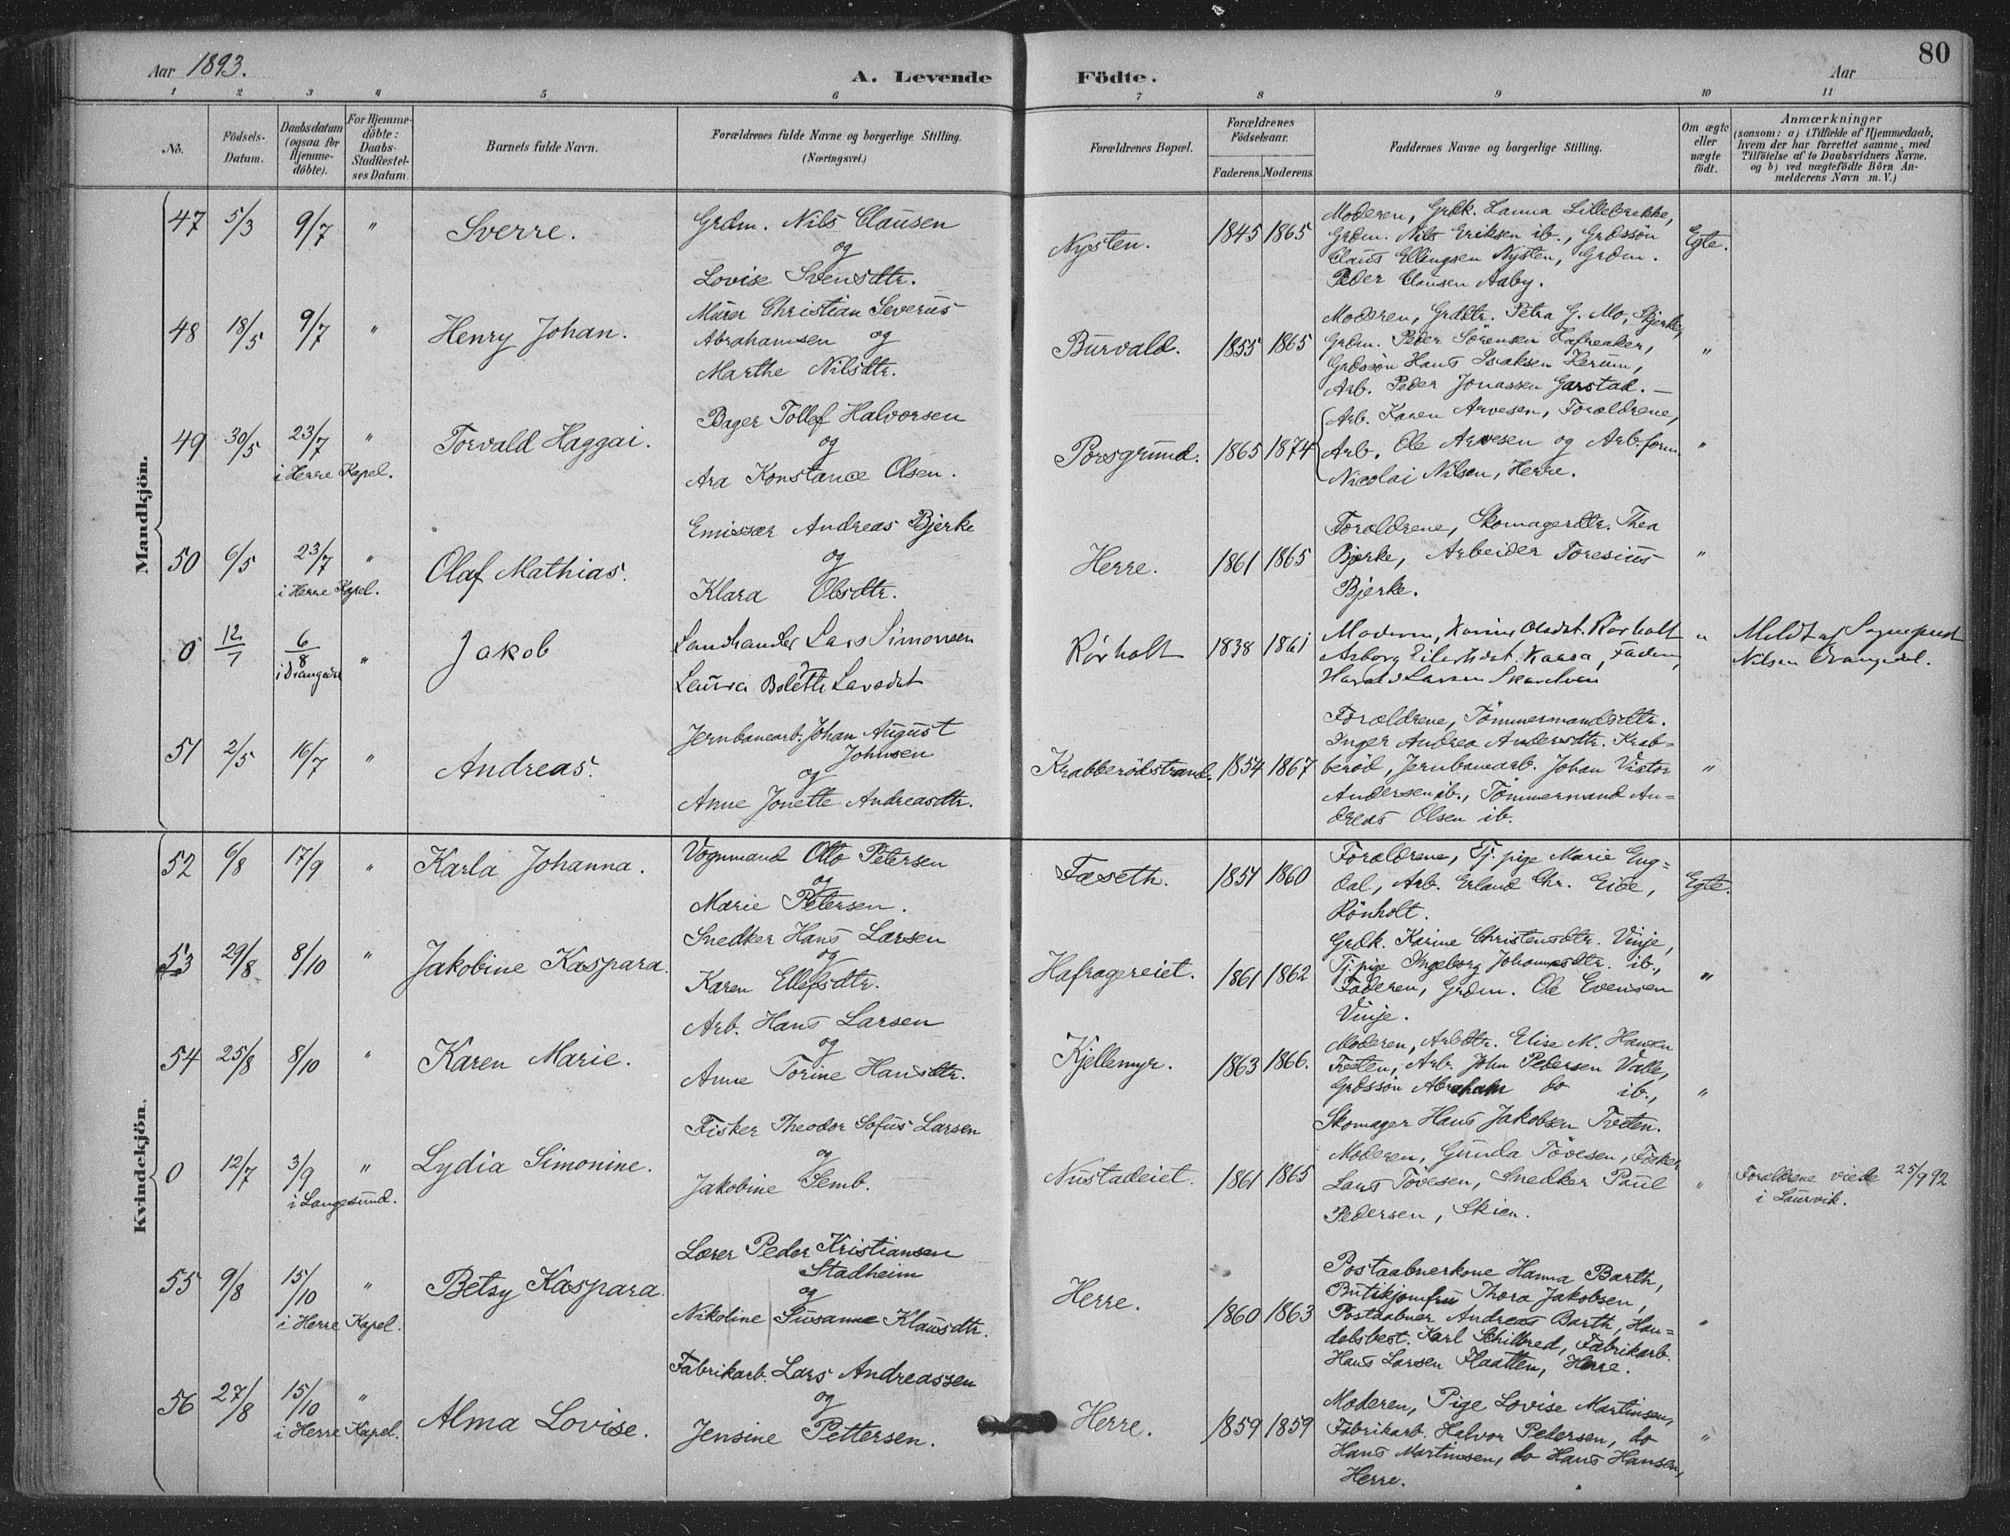 Aar 1893.
A. Levende Födte.
Aar
80
1 2 3 4 5 6 7 8 9 10 11
No.
Födsels-Datum.
Daabsdatum (ogsaa for Hjemme-döbte).
For Hjemme-döbte: Daabs-Stadfæstel-ses Datum.
Barnets fulde Navn.
Forældrenes fulde Navne og borgerlige Stilling. (Næringsvei.)
Forældrenes Bopæl.
Forældrenes Födselsaar.
Faderens. Moderens.
Faddernes Navne og borgerlige Stilling.
Om ægte eller uægte födt.
Anmærkninger
(saasom: a) i Tilfælde af Hjemmedaab, hvem der har forrettet samme, med Tilföielse af to Daabsvidners Navne, og b) ved uægtefödte Börn An-melderens Navn m. V.)
Mandkjön.
47 5/3 9/7 " Sverre.
Grdm. Nils Clausen
og
Lovise Svensdtr.
Nysten. 1845 1865
Moderen, Grdk. Lanna Lillebrekke,
Grdm. Nils Eriksen ib., Grdssön
Claus Ellingsen Nysten, Grdm.
Peder Clausen Aaby.
Egte.
48 18/5 9/7 " Henry Johan.
Murer Christian Severus
Abrahamsen og
Marthe Nilsdtr.
Burvald. 1855 1865
Moderen, Grddtr. Petra G. Mo, Bjerke,
Grdm. Peder Sörensen Hafreaker,
Grdssön Hans Isaksen Herum,
Arb. Peder Jonassen Garstad. —
"
49 30/5 23/7 " Torvald Haggai.
i Herre Kapel.
Bager Tollef Halvorsen
og
Ara Konstance Olsen.
Porsgrund. 1865 1874
Arb. Karen Arvesen, Forældrene,
Arb. Ole Arvesen og Arbform.
Nicolai Nilsen, Herre.
"
50 6/5 23/7 " Olaf Mathias.
i Herre Kapel.
Emissær Andreas Bjerke
og
Klara Olsdtr.
Herre. 1861 1865
Forældrene, Skomagerdtr. Thea
Bjerke, Arbeider Foresius
Bjerke.
"
0 12/7 6/8 " Jakob
i Drangedal
Landhandler Lars Simonsen
Laura Bolette Larsdat
Rörholt 1838 1861
Moderen, Karine Olsdat. Rörholt
Asborg Eilertsdat. Kaasa, Faderen,
Harald Larsen
"
Meldt af Sognepræst
Nilsen Drangedal.
51 2/5 16/7 " Andreas.
Jernbanearb. Johan August
Johnsen
og
Anne Jonette Andreasdtr.
Krabberödstrand. 1854 1867
Forældrene, Tömmermandsdtr.
Inger Andrea Andersdtr. Krab=
beröd, Jernbanearb. Johan Victor
Andersen ib., Tömmermand An=
dreas Olsen ib.
"
Kvindekjön.
52 6/8 17/9 " Karla Johanna.
Vognmand Otto Petersen
og
Marie Petersen.
Fæseth. 1851 1860
Forældrene, Tj.pige Marie Eng=
dal, Arb. Erland Chr. Eide,
Rönholt.
Egte.
53 29/8 8/10 " Jakobine Kaspara.
Snedker Hans Larsen
og
Karen Ellefsdtr.
Hafragereiet. 1861 1862
Grdk. Karine Christensdtr. Vinje,
Tj.pige Ingeborg Johannesdtr. ib.,
Faderen, Grdm. Ole Evensen
Vinje.
"
54 25/8 8/10 " Karen Marie.
Arb. Hans Larsen
og
Anne Torine Hansdtr.
Kjellemyr. 1863 1866.
Moderen, Arbdtr. Elise M. Hansen
Tveten, Arb. John Pedersen Valle,
Grdssön Abraham do ib.,
Skomager Hans Jakobsen Tveten.
"
0 12/7 3/9 " Lydia Simonine.
i Langesund.
Fisker Theodor Sofus Larsen
og
Jakobine Semb.
Nustadeiet. 1861 1865
Moderen, Gunda Tövesen, Fisker
Lars Tövesen, Snedker Paul
Pedersen, Skien.
"
Forældrene viede 25/9 92
i Laurvik.
55 9/8 15/10 " Betsy Kaspara.
i Herre Kapel.
Lærer Peder Kristiansen
Stadheim
og
Nikoline Susanne Klausdtr.
Herre. 1860 1863
Postaabnerkone Hanna Barth,
Butikjomfru Thora Jakobsen,
Postaabner Andreas Barth, Han=
delsbest. Karl Schilbred, Fabrikarb.
Hans Larsen Flaatten, Herre.
"
56 27/8 15/10 " Alma Lovise.
i Herre Kapel.
Fabrikarb. Lars Andreassen
og
Jensine Pettersen.
Herre. 1859 1859
Moderen, Pige Lovise Martinsen,
Fabrikarb. Halvor Pedersen, do
Hans Martinsen, do Hans Hansen,
Herre.
"